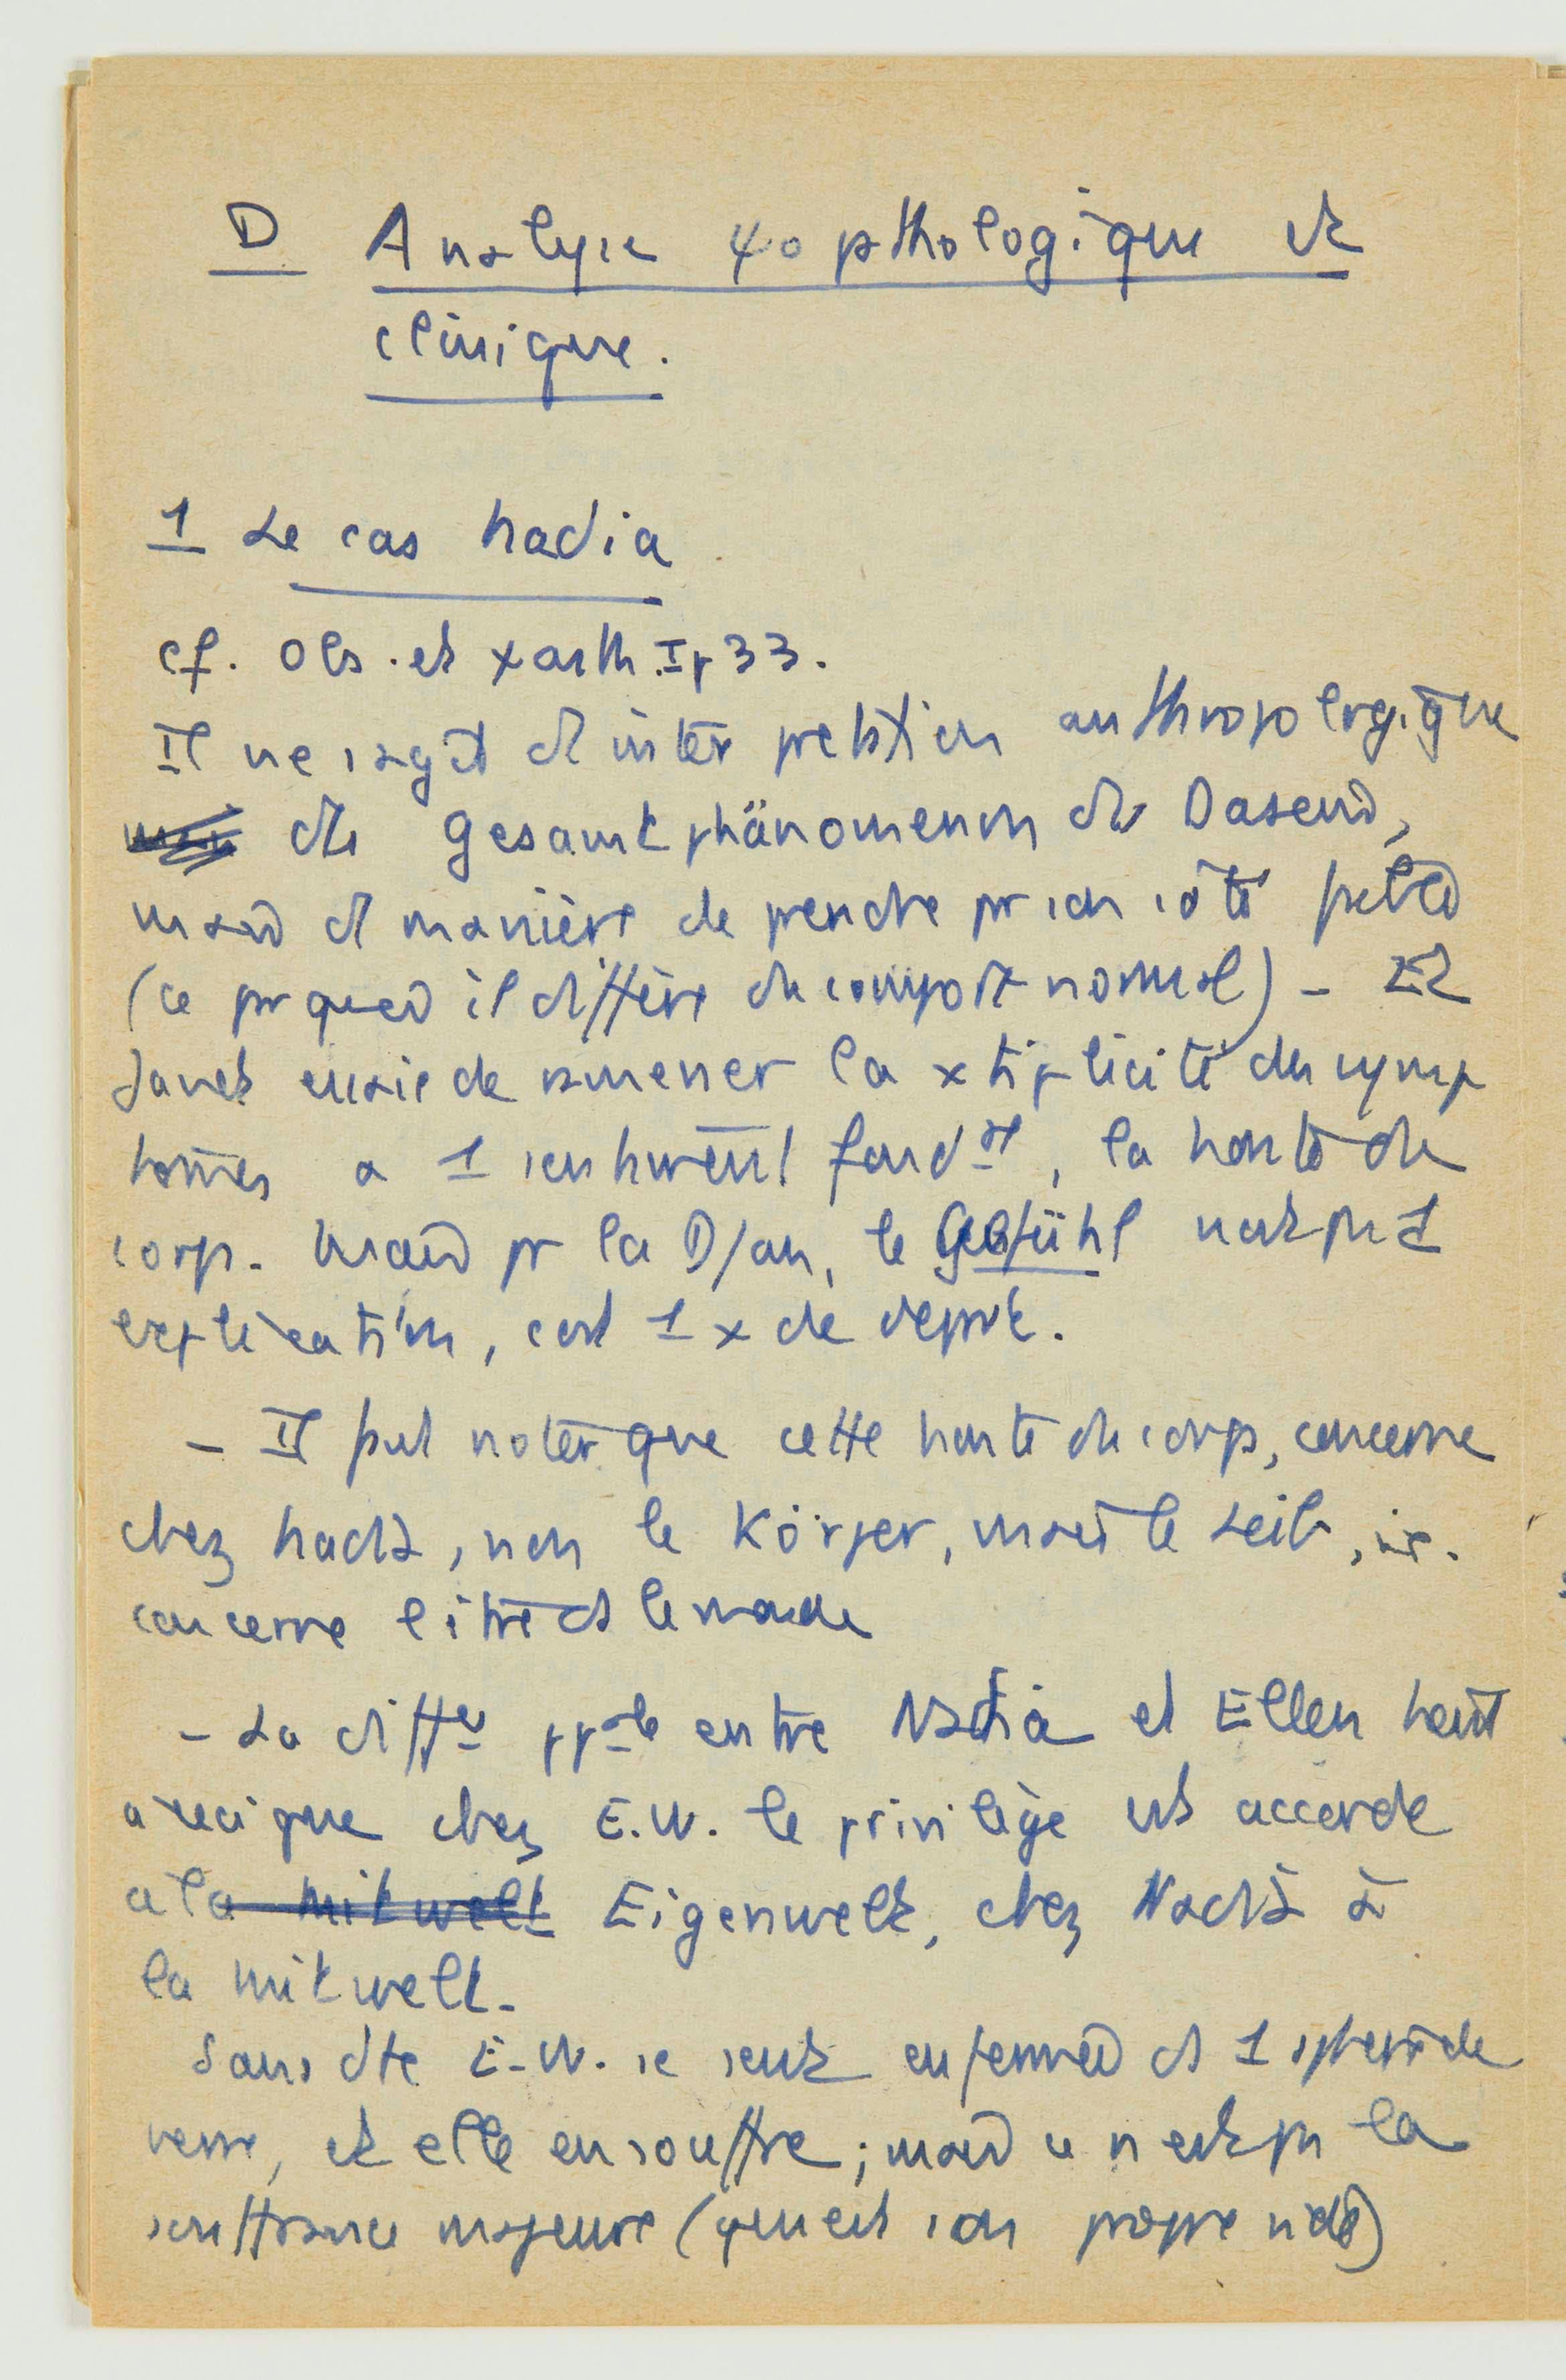 D Analyse ψopathologique et
clinique.
1 Le cas Nadia
cf. Obs. et ψasth. I p 33.
Il ne s'agit d'interprétation anthropologique
de Gesamtphänomenon du Dasein,
mais d manière de prendre pr son côté
(ce pr quoi il diffère du comport normal) - Et
Janet essaie de ramener la xtiplicité des symp
tômes a 1 sentiment fondal, la honte du
corps. Mais pr la D/an, le Gefühl n'est pas 1
explication, c'est 1 x de départ.
- Il faut noter que cette honte du corps, concerne
chez Nadia, non le Körper, mais le Leib, ie.
concerne l'être ds le monde
- La diffce ppale entre Nadia et Ellen tient
a ceci que chez E.W. le privilège est accordé
a la Mitwelt Eigenwelt, chez Nadia à
la Mitwelt.
Sans dte E.W. se sent enfermée ds 1 sphère de
verre, et elle en souffre ; mais ce n'est pas la
souffrance majeure (qui est son propre)